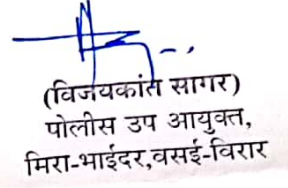 (विजयकांत सागर)
पोलीस उप आयुक्त,
मिरा-भाईंदर,वसई-विरार